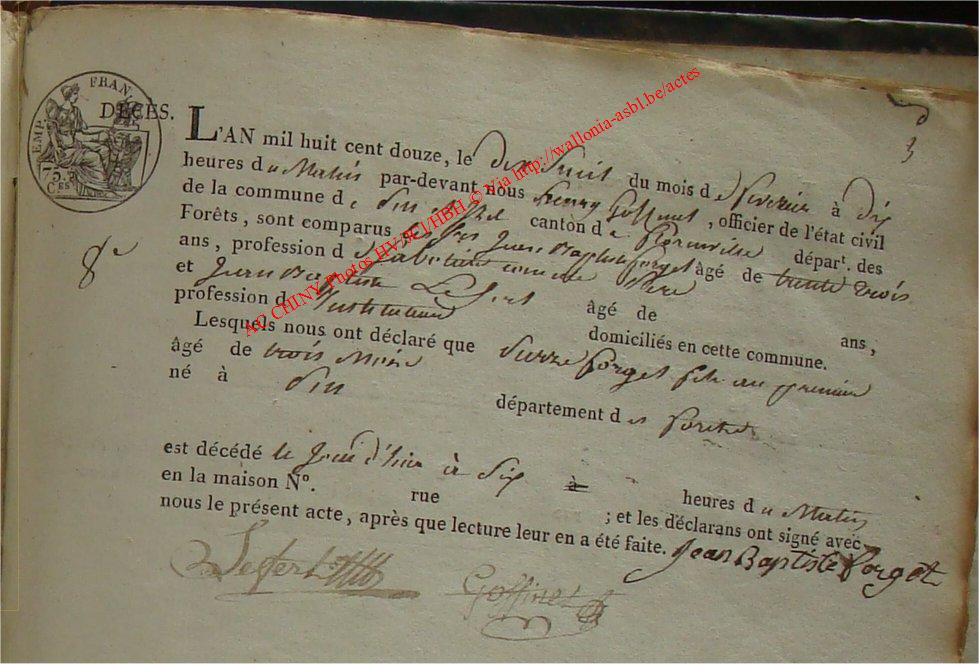 FRANÇ
EMP.
75.
CES
DÉCÈS.
3
8e
L'AN mil huit cent douze, le dix huit du mois de fevrier à dix
heures du Matin par-devant nous henry Goffinet, officier de l'état civil
de la commune de canton de florenville dépar. des
Forêts, sont comparus Jean Baptiste forget âgé de trente trois
ans, profession de père
et Jean Baptiste Lefert âgé de ans;
profession d'instituteur domiciliés en cette commune.
Lesquels nous ont déclaré que Pierre forget fils au premier
âgé de trois Mois
né à Pin département des forêts
est décédé le Jour d'hier à Six à heures du Matin
en la maison No. rue ; et les déclarans ont signé avec
nous le présent acte, après que lecture leur en a été faite.
Jean Baptiste Forget
Lefert
Goffinet
AC CHINY Photos HV/JCL/HBH © Via http://wallonia-asbl.be/actes